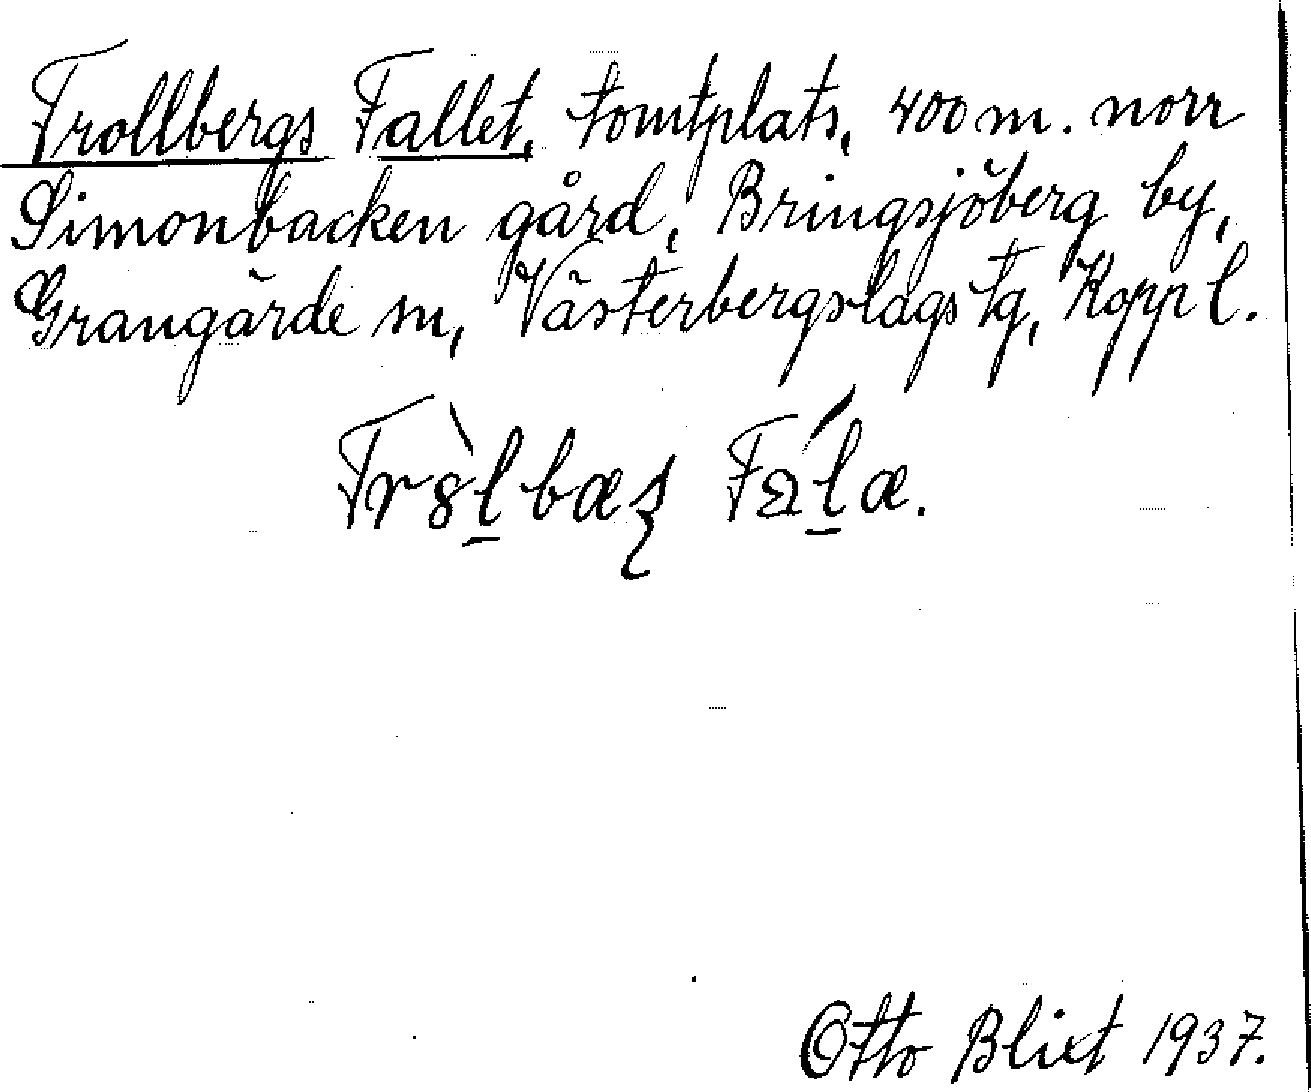 Trollbergs Fallet, tomtplats, 400 m. norr
Simonbacken gård, Bringsjöberg by,
Grangärde sn, Västerbergslags tg, Kopp l.
Otto Blixt 1937.